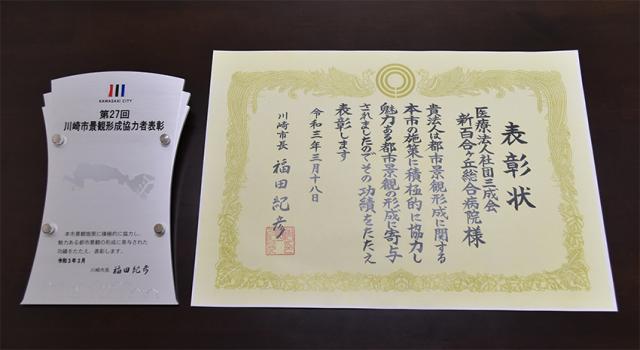 KAWASAKI CITY
第27回
川崎市景観形成協力者表彰
本市景観施策に積極的に協力し、
魅力ある都市景観の形成に寄与された
功績をたたえ、表彰します。
令和3年3月
川崎市長 福田紀彦
表彰状
医療法人社団三成会
新百合ヶ丘総合病院 様
貴法人は都市景観形成に関する
本市の施策に積極的に協力し
魅力ある都市景観の形成に寄与
されましたのでその功績をたたえ
表彰します
令和三年三月十八日
川崎市長 福田紀彦